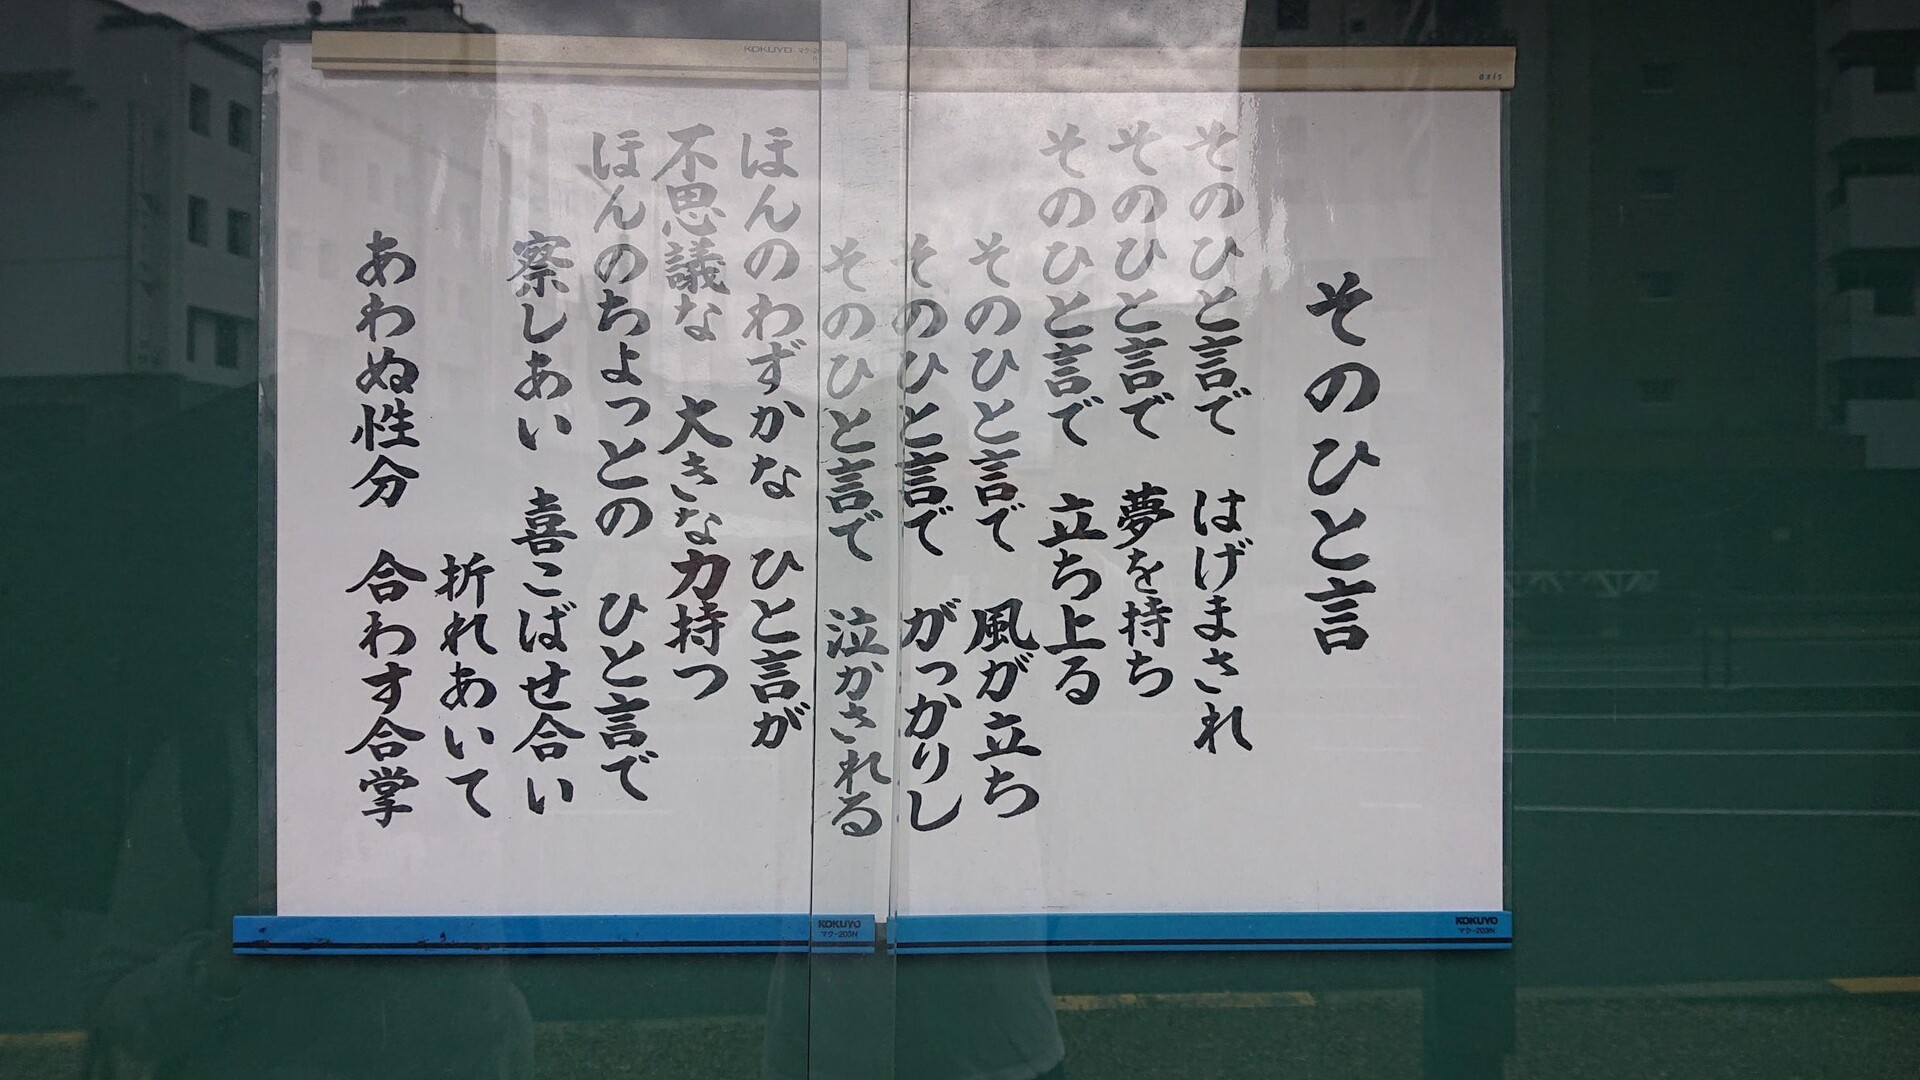 そのひと言
そのひと言で　はげまされ
そのひと言で　夢を持ち
そのひと言で　立ち上る
そのひと言で　風が立ち
そのひと言で　がっかりし
そのひと言で　泣かされる
ほんのわずかな　ひと言が
不思議な　大きな力持つ
ほんのちょっとの　ひと言で
察しあい　喜こばせ合い
折れあいて
あわぬ性分　合わす合掌
KOKUYO マク-20
axis
KOKUYO
マク-203N
KOKUYO
マク-203N